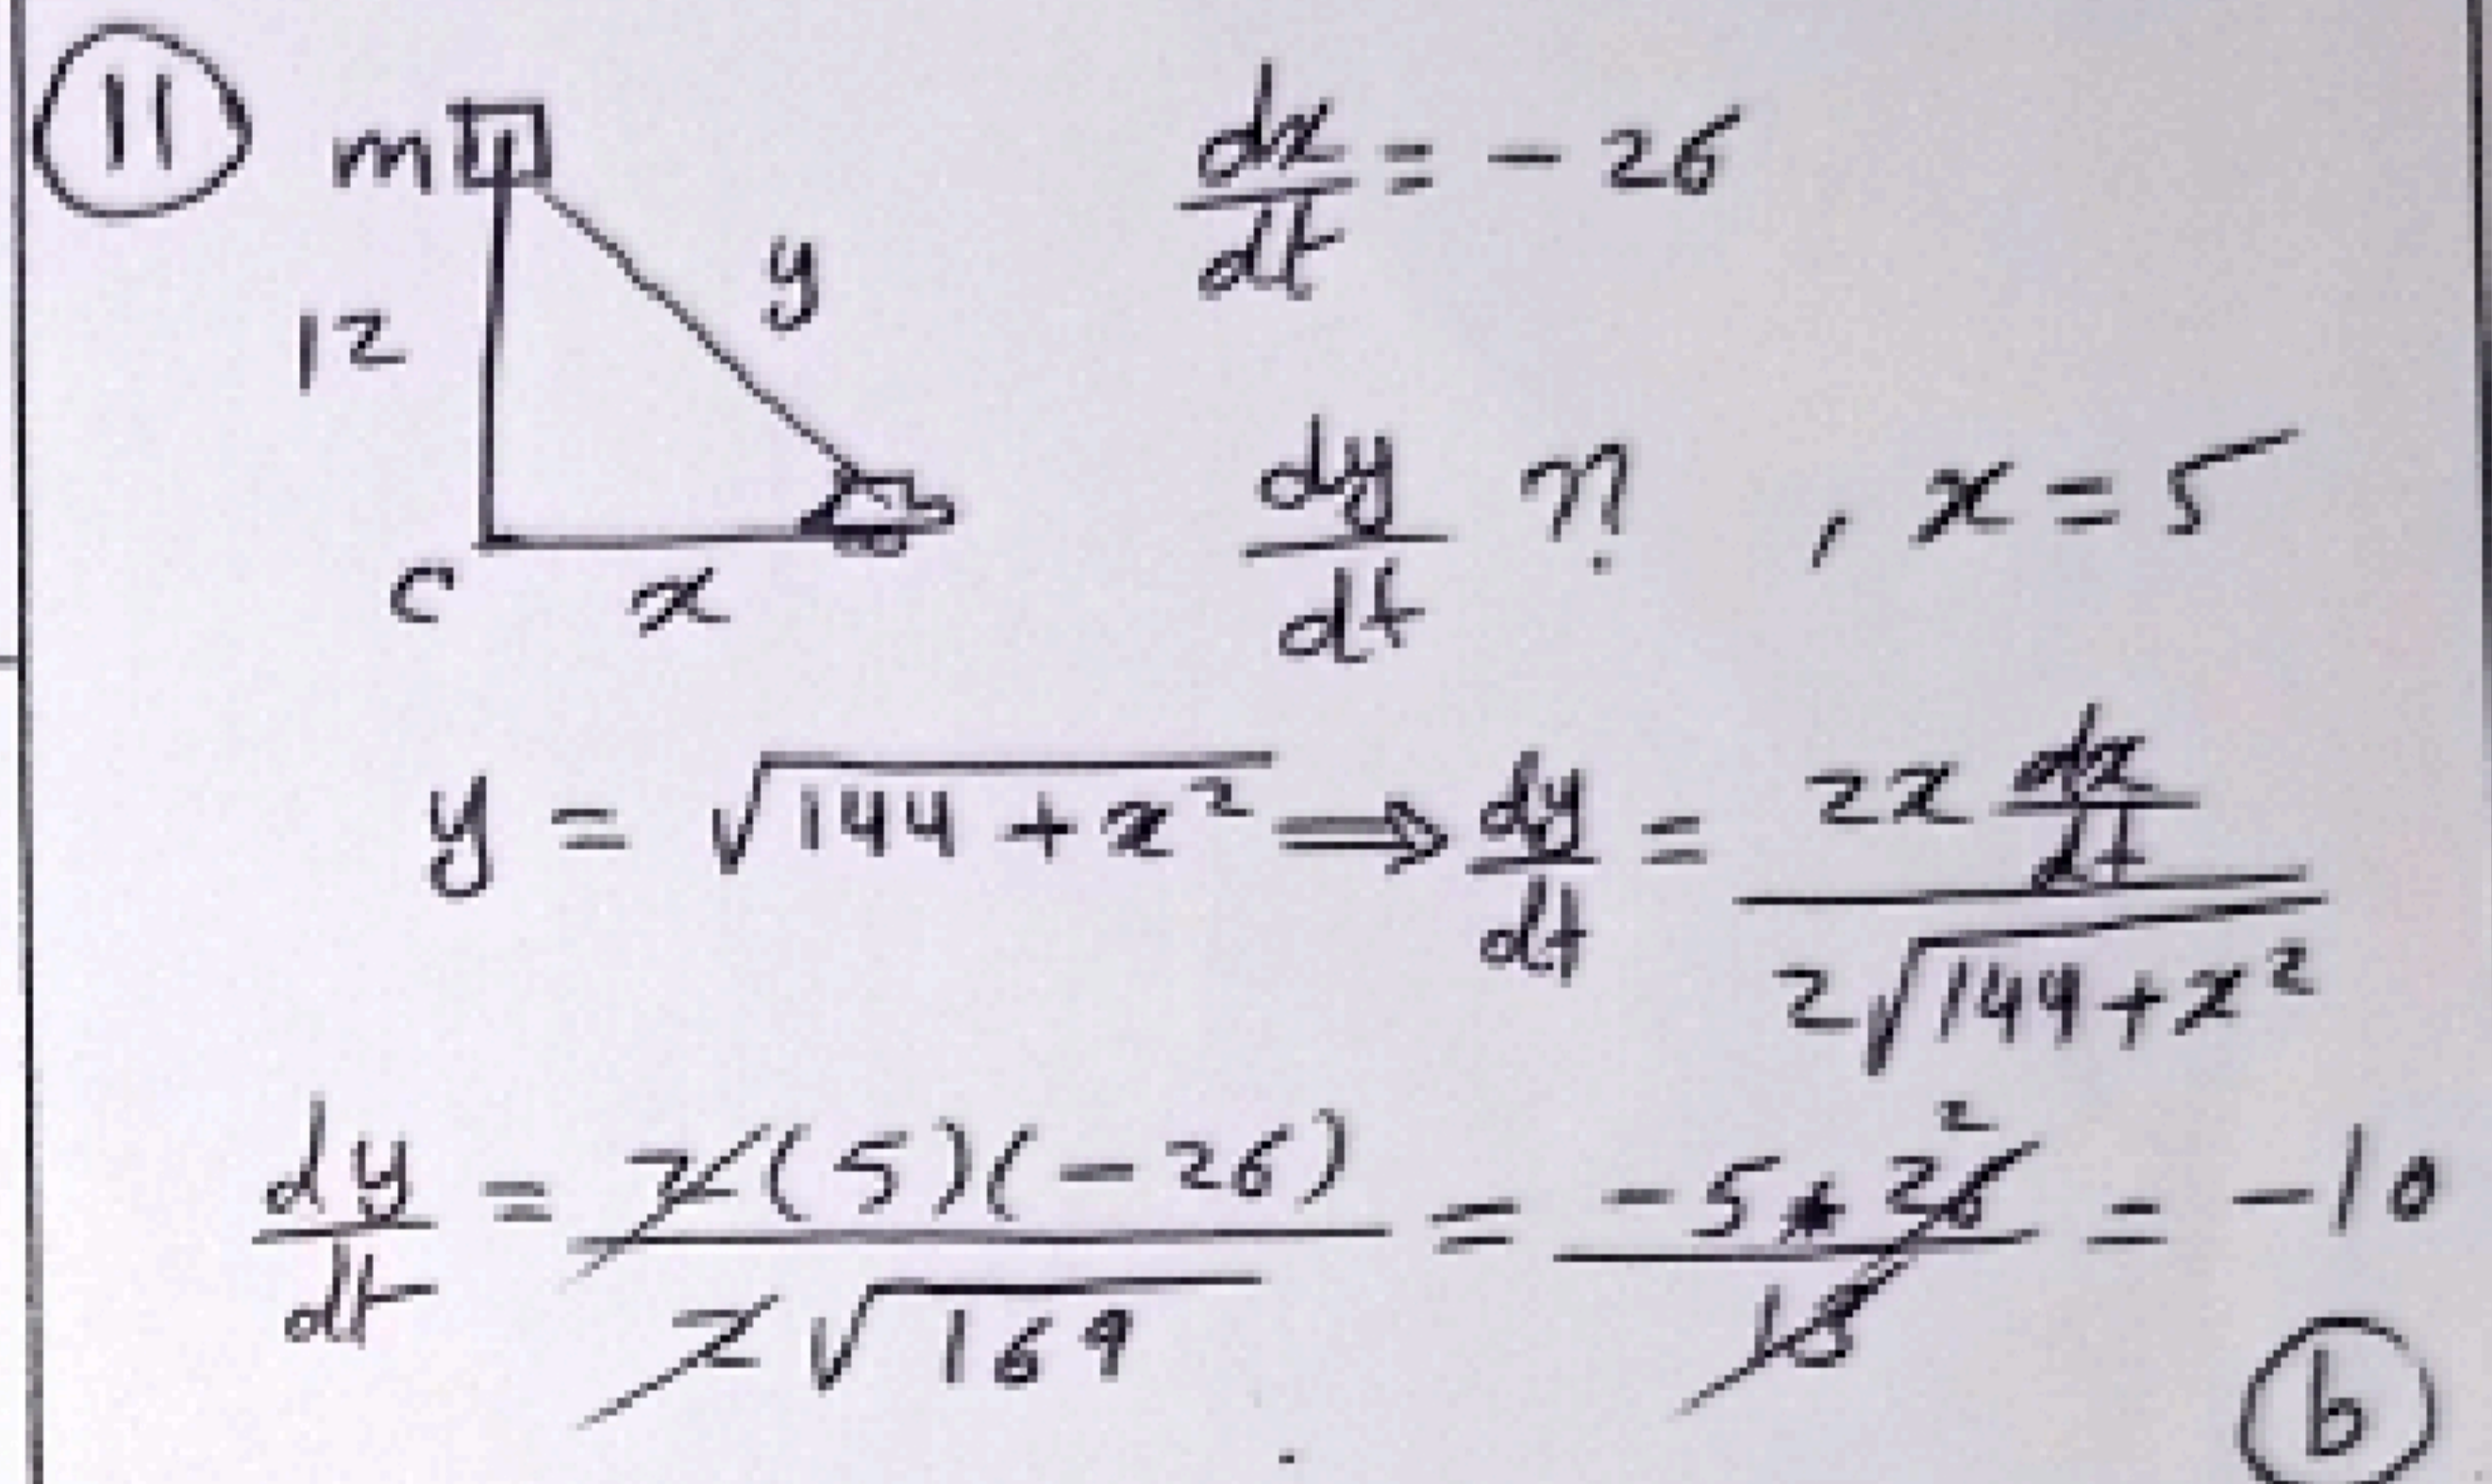 11
m
dx/dt = - 26
12
y
dy/dt ?? , x = 5
c x
y = √(144 + x²) ⟹ dy/dt = (2x dx/dt) / (2√(144+x²))
dy/dt = (2(5)(-26)) / (2√169) = (-5 * 26) / 13 = -10
2
b